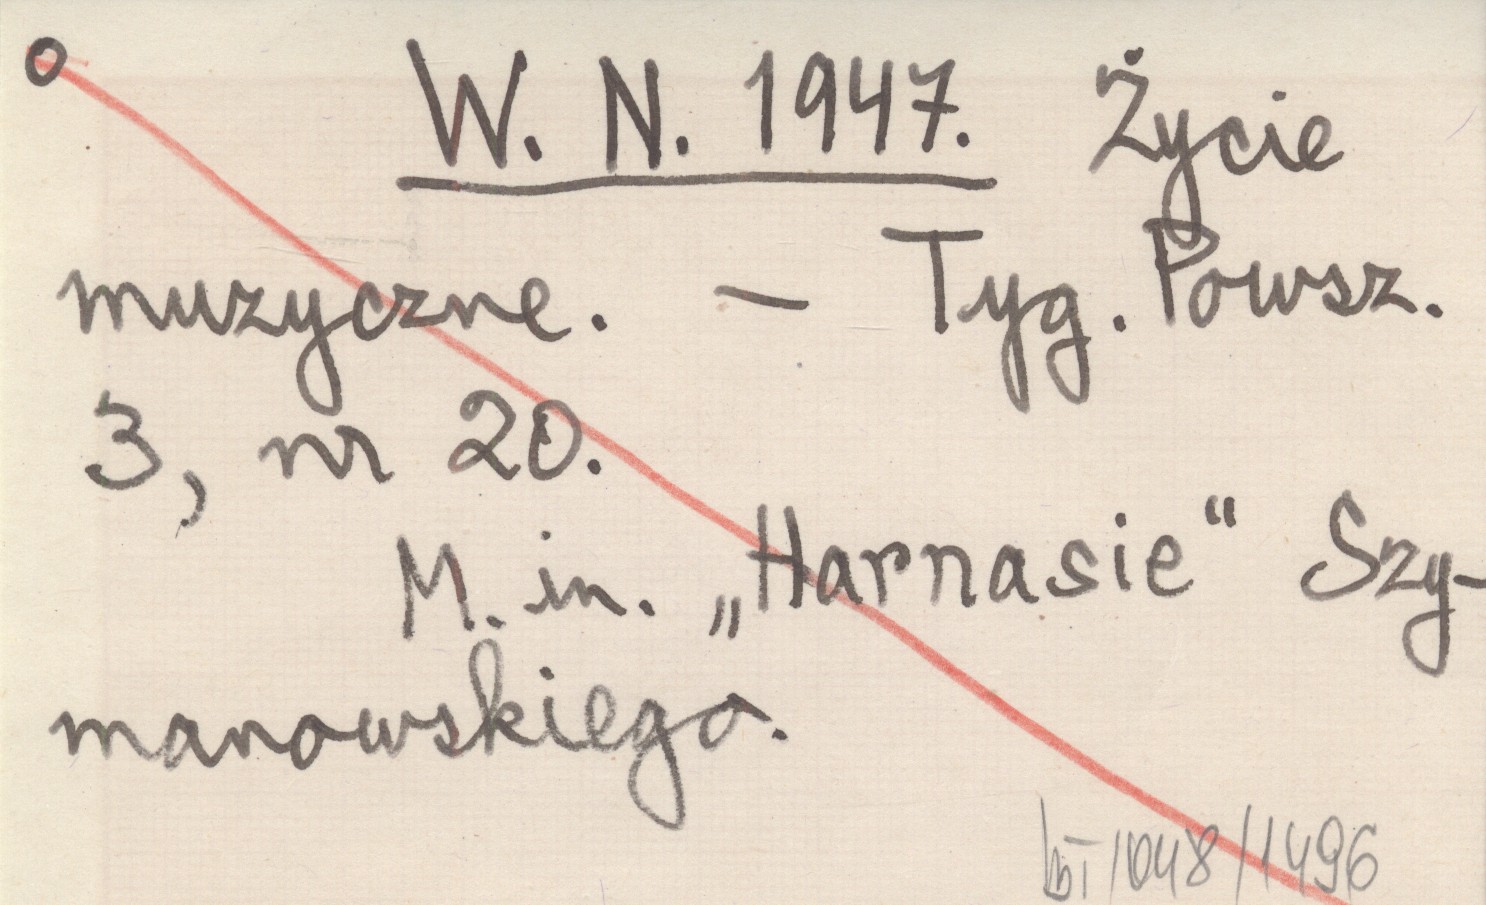 o W. N. 1947. Życie
muzyczne. – Tyg. Powsz.
3, nr 20.
M. in. „Harnasie“ Szy-
manowskiego.
1048/1496